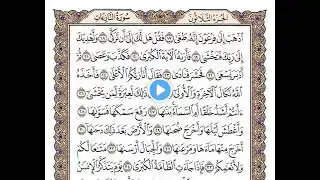 الجزء الثلاثون سورة النازعات
ٱذۡهَبۡ إِلَىٰ فِرۡعَوۡنَ إِنَّهُۥ طَغَىٰ ١٧ فَقُلۡ هَل لَّكَ إِلَىٰٓ أَن تَزَكَّىٰ ١٨ وَأَهۡدِيَكَ
إِلَىٰ رَبِّكَ فَتَخۡشَىٰ ١٩ فَأَرَىٰهُ ٱلۡأٓيَةَ ٱلۡكُبۡرَىٰ ٢٠ فَكَذَّبَ وَعَصَىٰ ٢١ ثُمَّ
أَدۡبَرَ يَسۡعَىٰ ٢٢ فَحَشَرَ فَنَادَىٰ ٢٣ فَقَالَ أَنَا۠ رَبُّكُمُ ٱلۡأَعۡلَىٰ ٢٤ فَأَخَذَهُ
ٱللَّهُ نَكَالَ ٱلۡأٓخِرَةِ وَٱلۡأُولَىٰٓ ٢٥ إِنَّ فِي ذَٰلِكَ لَعِبۡرَةٗ لِّمَن يَخۡشَىٰٓ ٢٦
ءَأَنتُمۡ أَشَدُّ خَلۡقًا أَمِ ٱلسَّمَآءُۚ بَنَىٰهَا ٢٧ رَفَعَ سَمۡكَهَا فَسَوَّىٰهَا ٢٨
وَأَغۡطَشَ لَيۡلَهَا وَأَخۡرَجَ ضُحَىٰهَا ٢٩ وَٱلۡأَرۡضَ بَعۡدَ ذَٰلِكَ دَحَىٰهَآ ٣٠
أَخۡرَجَ مِنۡهَا مَآءَهَا وَمَرۡعَىٰهَا ٣١ وَٱلۡجِبَالَ أَرۡسَىٰهَا ٣٢ مَتَٰعٗا لَّكُمۡ
وَلِأَنۡعَٰمِكُمۡ ٣٣ فَإِذَا جَآءَتِ ٱلطَّآمَّةُ ٱلۡكُبۡرَىٰ ٣٤ يَوۡمَ يَتَذَكَّرُ ٱلۡإِنسَٰنُ